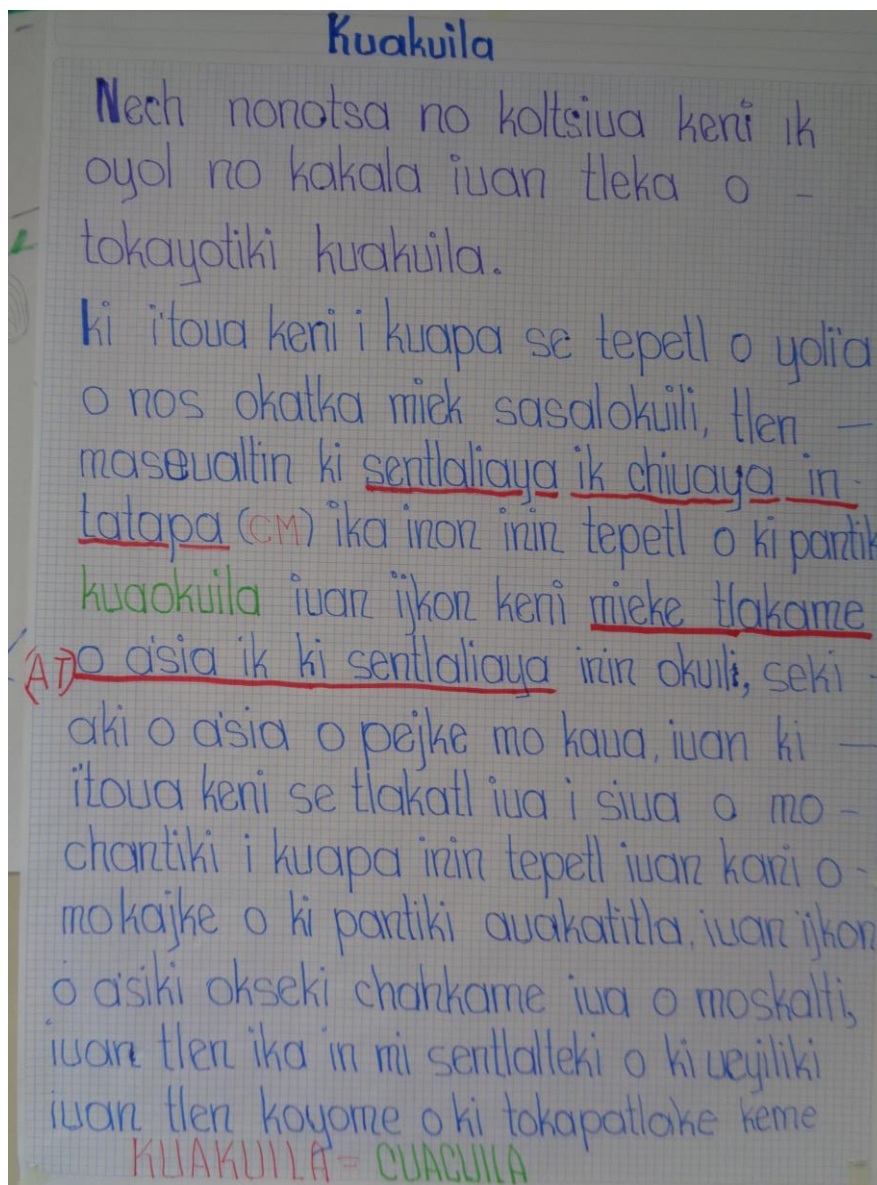 Kuakuila
Nech nonotsa no koltsiua keni ik
oyol no kakala iuan tleka o -
tokayotiki kuakuila.
ki i'toua keni i kuapa se tepetl o yoli'a
o nos okatka miek sasalokuili, tlen -
maseualtin ki sentlaliaya ik chiuaya in -
tatapa (CM) ika inon inin tepetl o ki pantik
kuaokuila iuan ijkon keni mieke tlakame
(AT) o a'sia ik ki sentlaliaya inin okuili, seki -
aki o a'sia o pejke mo kaua, iuan ki -
i'toua keni se tlakatl iua i siua o mo -
chantiki i kuapa inin tepetl iuan kani o -
mokajke o ki pantiki auakatitla, iuan ijkon
o a'siki okseki chahkame iua o moskalti,
iuan tlen ika in mi sentlalteki o ki ueyiliki
iuan tlen koyome o ki tokapatlake keme
KUAKUILA = CUACUILA